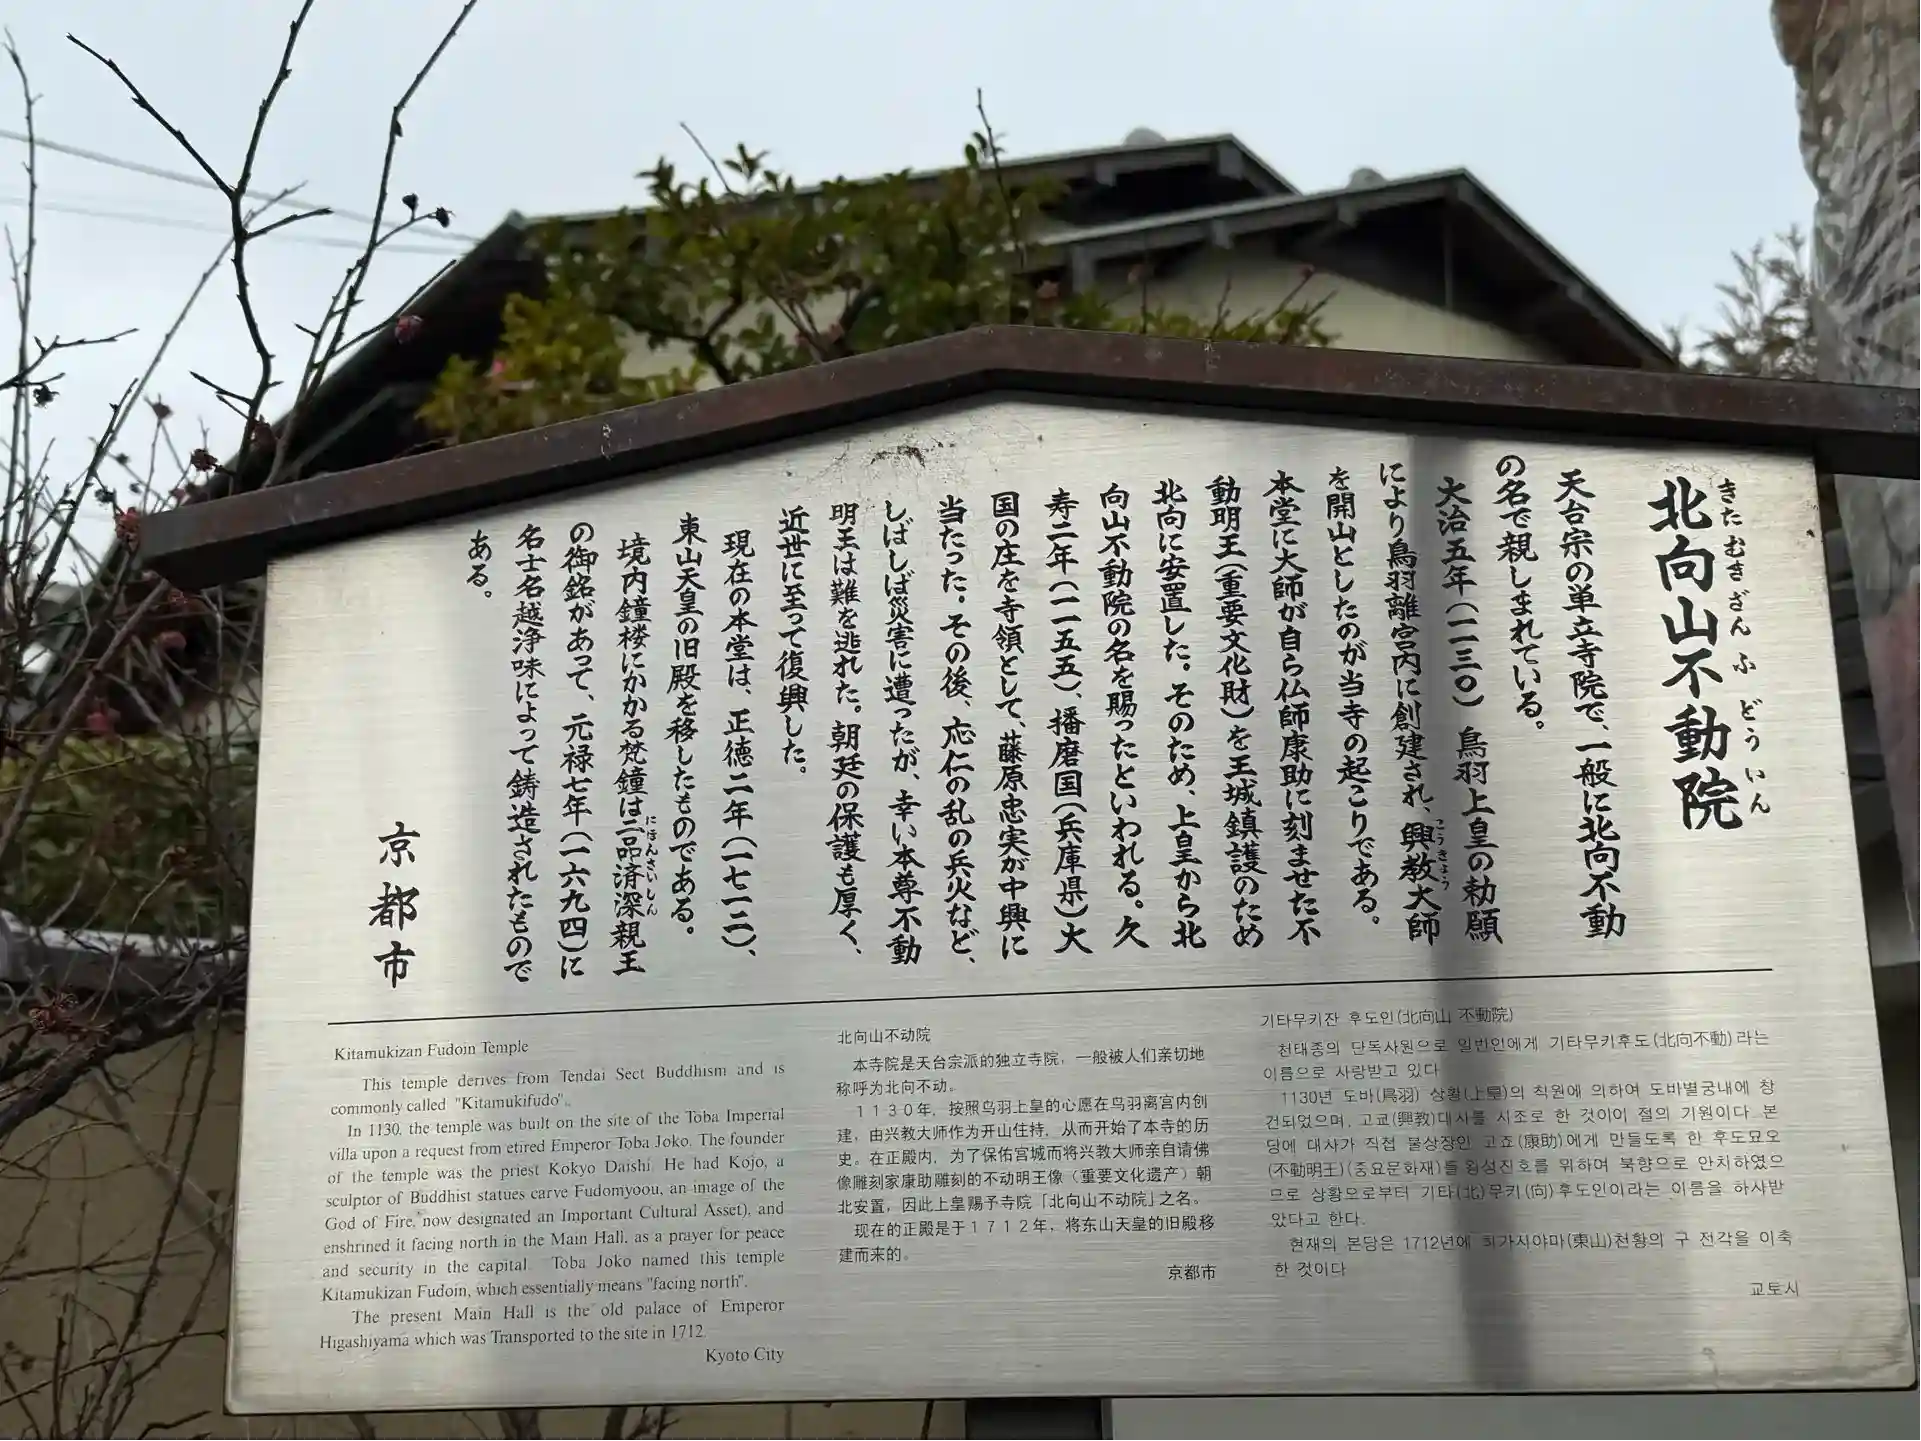 北向山不動院
きたむきざんふどういん
天台宗の単立寺院で、一般に北向不動
の名で親しまれている。
大治五年(一一三〇)鳥羽上皇の勅願
により鳥羽離宮内に創建され、興教大師
こうきょう
を開山としたのが当寺の起こりである。
本堂に大師が自ら仏師康助に刻ませた不
動明王(重要文化財)を王城鎮護のため
北向に安置した。そのため、上皇から北
向山不動院の名を賜ったといわれる。久
寿二年(一一五五)、播磨国(兵庫県)大
国の庄を寺領として、藤原忠実が中興に
当たった。その後、応仁の乱の兵火など、
しばしば災害に遭ったが、幸い本尊不動
明王は難を逃れた。朝廷の保護も厚く、
近世に至って復興した。
現在の本堂は、正徳二年(一七一二)、
東山天皇の旧殿を移したものである。
境内鐘楼にかかる梵鐘は二品済深親王
にほんさいしん
の御銘があって、元禄七年(一六九四)に
名士名越浄味によって鋳造されたもので
ある。
京都市
Kitamukizan Fudoin Temple
This temple derives from Tendai Sect Buddhism and is
commonly called "Kitamukifudo".
In 1130, the temple was built on the site of the Toba Imperial
villa upon a request from etired Emperor Toba Joko. The founder
of the temple was the priest Kokyo Daishi. He had Kojo, a
sculptor of Buddhist statues carve Fudomyoou, an image of the
God of Fire, now designated an Important Cultural Asset), and
enshrined it facing north in the Main Hall, as a prayer for peace
and security in the capital. Toba Joko named this temple
Kitamukizan Fudoin, which essentially means "facing north".
The present Main Hall is the old palace of Emperor
Higashiyama which was Transported to the site in 1712.
Kyoto City
北向山不动院
本寺院是天台宗派的独立寺院，一般被人们亲切地
称呼为北向不动。
1130年，按照鸟羽上皇的心愿在鸟羽离宫内创
建，由兴教大师作为开山住持，从而开始了本寺的历
史。在正殿内，为了保佑宫城而将兴教大师亲自请佛
像雕刻家康助雕刻的不动明王像（重要文化遗产）朝
北安置，因此上皇赐予寺院「北向山不动院」之名。
现在的正殿是于1712年，将东山天皇的旧殿移
建而来的。
京都市
기타무키잔 후도인(北向山 不動院)
천태종의 단독사원으로 일반인에게 기타무키후도(北向不動)라는
이름으로 사랑받고 있다
1130년 도바(鳥羽) 상황(上皇)의 칙원에 의하여 도바별궁내에 창
건되었으며, 고쿄(興教)대사를 시조로 한 것이이 절의 기원이다. 본
당에 대사가 직접 불상장인 고죠(康助)에게 만들도록 한 후도묘오
(不動明王)(중요문화재)를 왕성진호를 위하여 북향으로 안치하였으
므로 상황으로부터 기타(北)무키(向)후도인이라는 이름을 하사받
았다고 한다.
현재의 본당은 1712년에 히가시야마(東山)천황의 구 전각을 이축
한 것이다
교토시